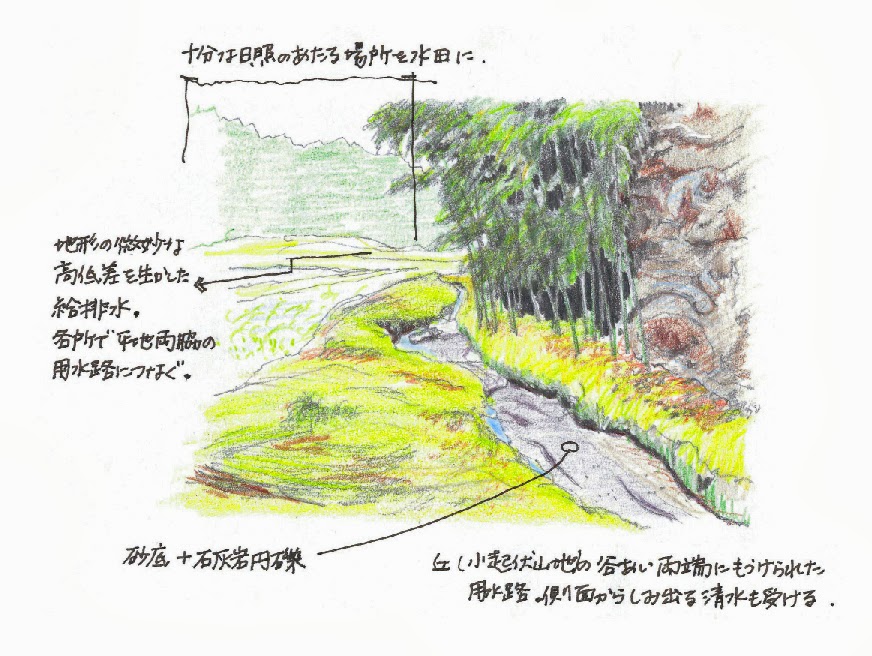 十分な日照のあたる場所を水田に.
地形の微妙な
高低差を生かした
給排水。
各所で平地両脇の
用水路につなぐ。
砂底+石灰岩円礫
丘(小起伏山地)の谷あい両端にもうけられた
用水路.側面からしみ出る清水も受ける.